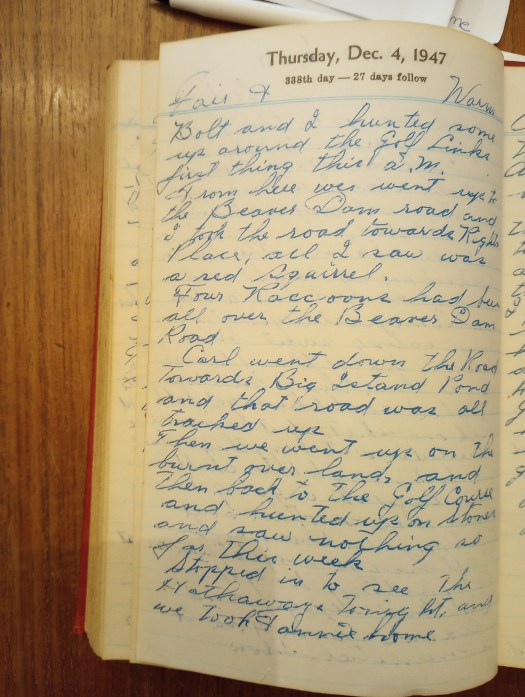 Thursday, Dec. 4, 1947
338th day — 27 days follow
Fair & Warm
Bolt and I hunted some
up around the Golf Links
first thing this a.m.
From here we went up to
the Beaver Dam road and
I took the road towards
Place, all I saw was
a red Squirrel.
Four Raccoons had been
all over the Beaver Dam
Road
Carl went down the Road
Towards Big Island Pond
and that road was all
tracked up
Then we went up on the
burnt over land, and
Then back to the Golf Course
and hunted up on
and saw nothing so
far this week
Stopped in to see The
Hathaways Tonight, and
we took home